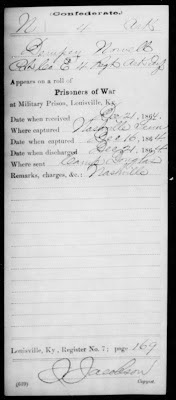 (Confederate.)
N 4 Ark
Newell
Co. E, 4 Regt Ark Inf
Appears on a roll of
Prisoners of War
at Military Prison, Louisville, Ky.
Date when received Dec 21, 1864.
Where captured Nashville Tenn
Date when captured Dec 16, 1864
Date when discharged Dec 21, 1864
Where sent Camp Douglas
Remarks, charges, &c.: Nashville
Louisville, Ky., Register No. 7; page 169
J Jacobson
(639) Copyist.